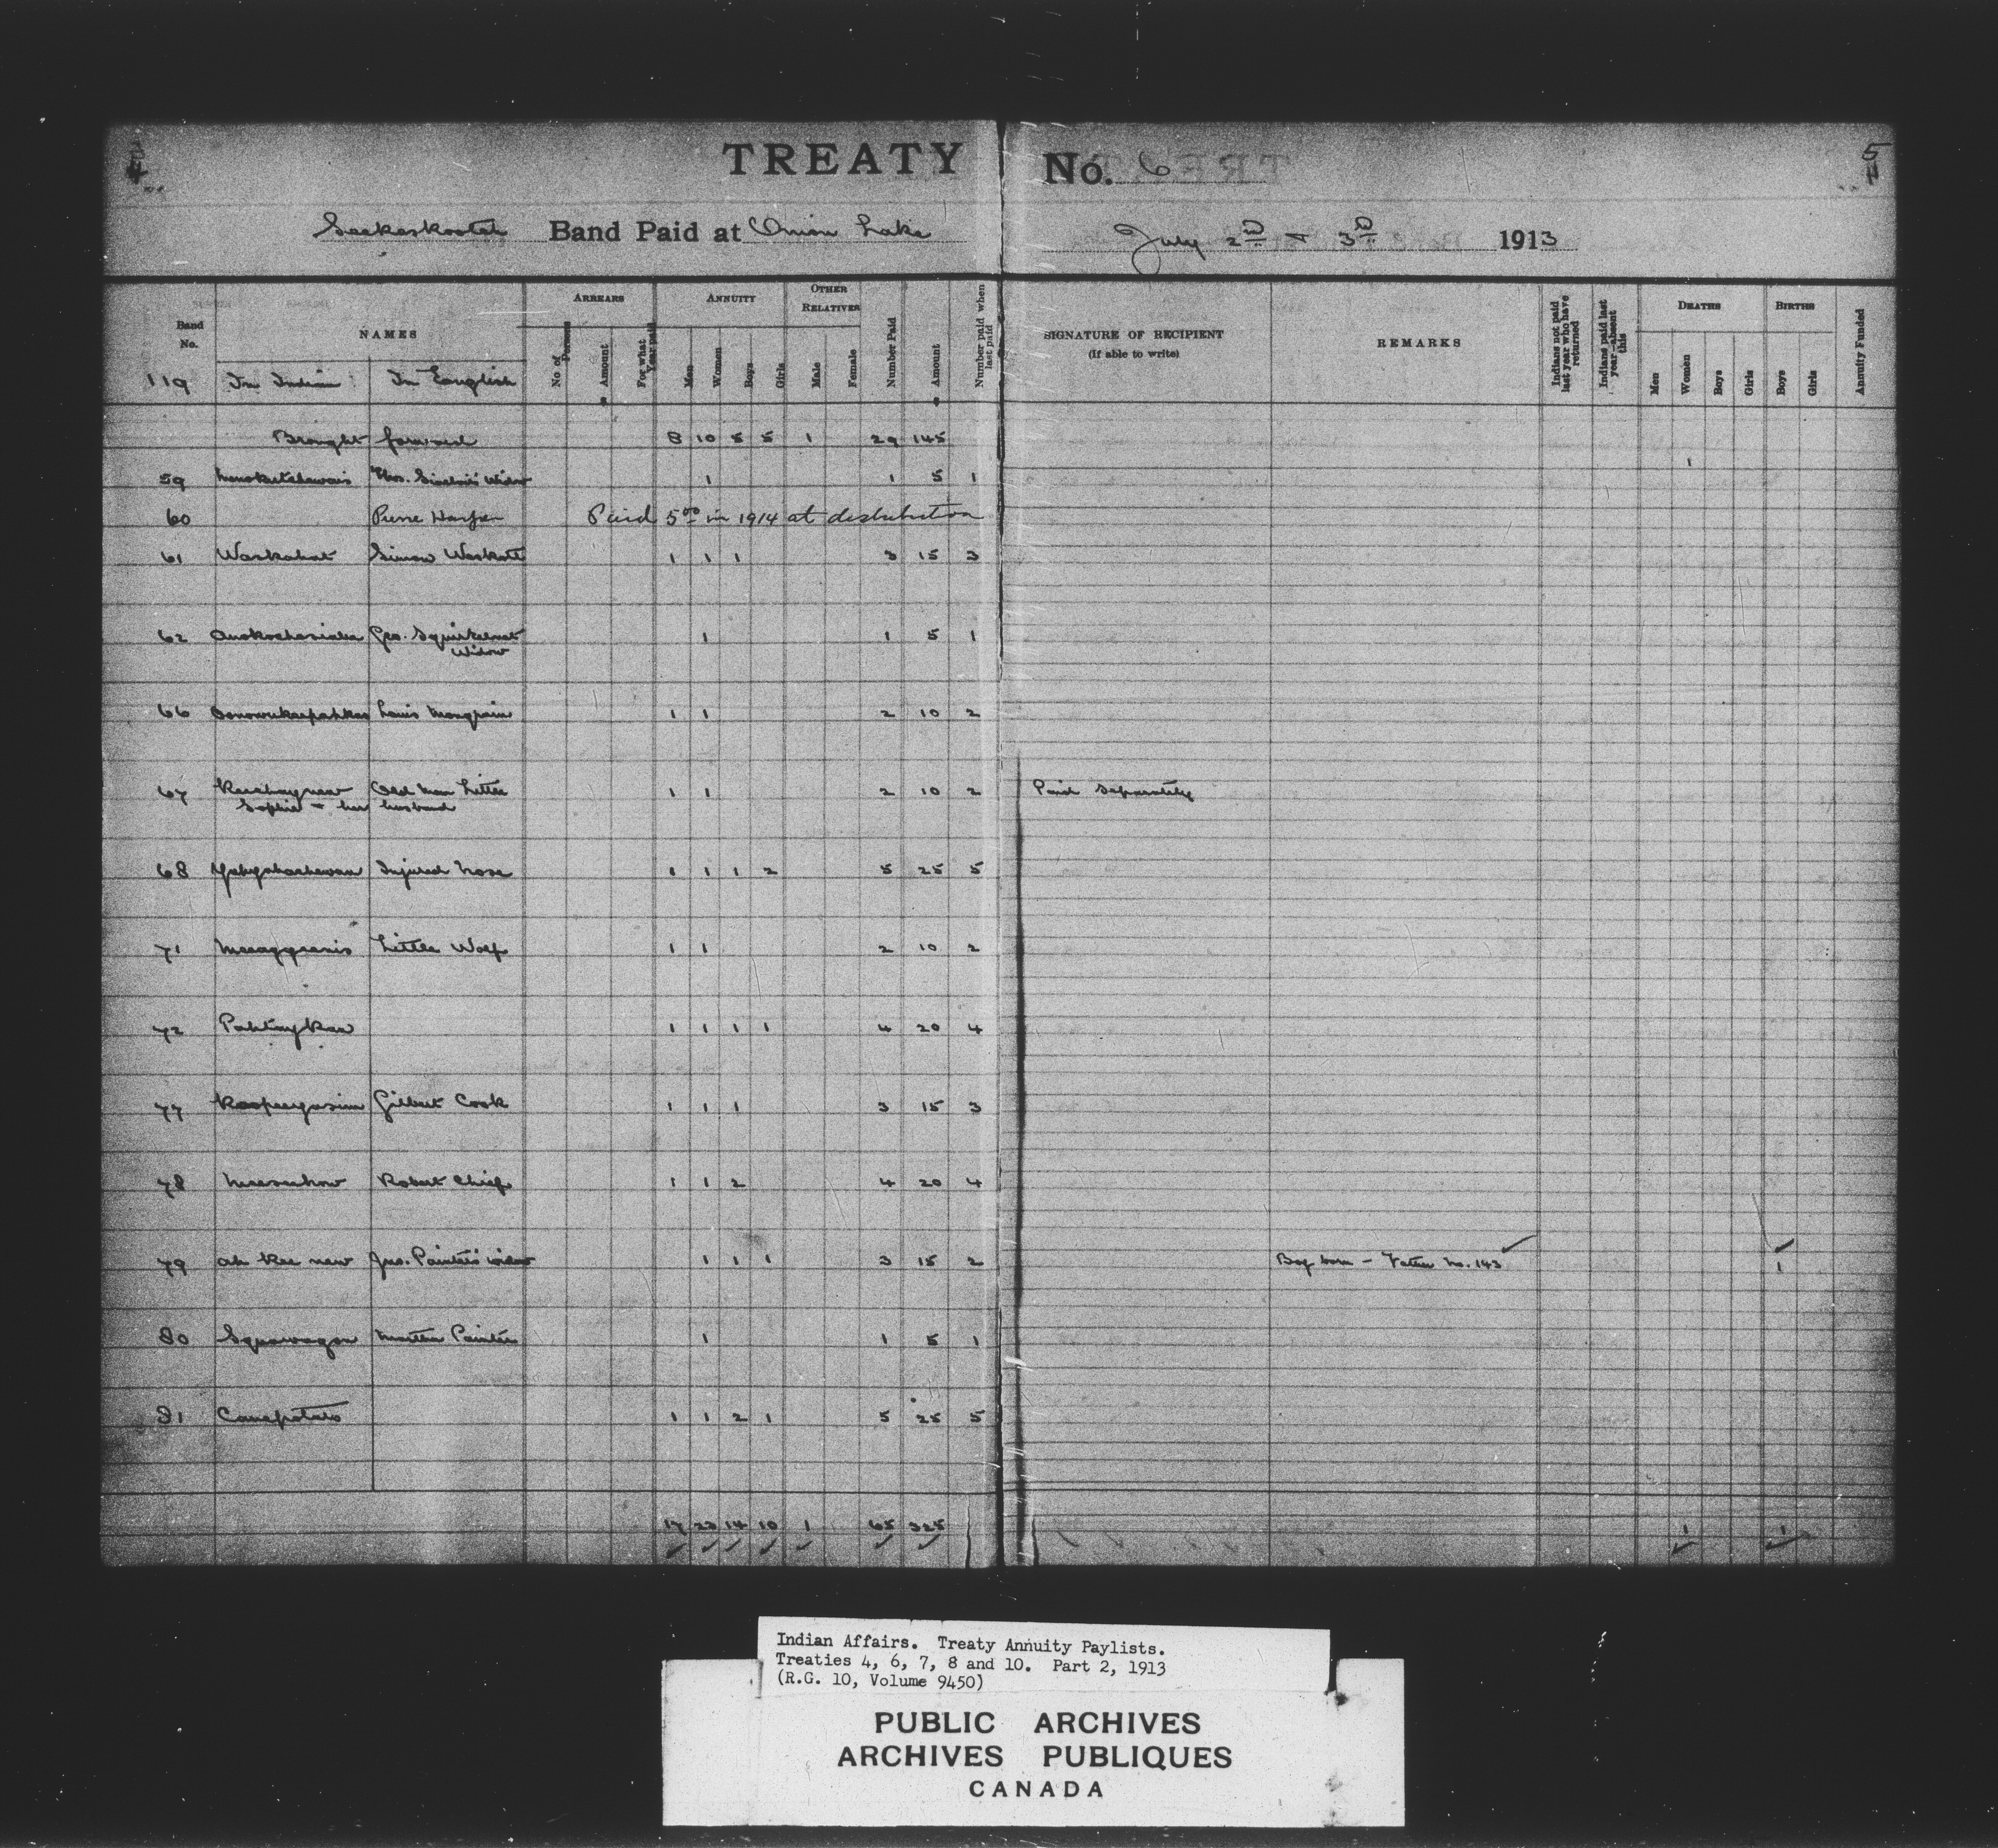 4
TREATY No. 6
5
Seekaskootch Band Paid at Onion Lake July 2nd & 3rd 1913
Band No.
NAMES
ARREARS
ANNUITY
OTHER RELATIVES
Number Paid
Amount
Number paid when last paid
SIGNATURE OF RECIPIENT
(If able to write)
REMARKS
Indians not paid last year who have returned
Indians paid last year—absent this
DEATHS
BIRTHS
Annuity Funded
No. of Persons
Amount
For what Year paid
Men
Women
Boys
Girls
Male
Female
Men
Women
Boys
Girls
Boys
Girls
119 In Indian In English
Brought forward 8 10 5 5 1 29 145
1
59 Thos. Sinclair's Widow 1 1 5 1
60 Pierre Harper Paid 5.00 in 1914 at distribution
61 Waskahat Simon Waskatt 1 1 1 3 15 3
62 Geo. Squirkenat Widow 1 1 5 1
66 Louis Mongrain 1 1 2 10 2
67 Old Man Little 1 1 2 10 2 Paid separately
Sophie & her husband
68 Injured Nose 1 1 1 2 5 25 5
71 Little Wolf 1 1 2 10 2
72 Pahtaykaw 1 1 1 1 4 20 4
77 Kaopeeyasim Gilbert Cook 1 1 1 3 15 3
78 Robert Chief 1 1 2 4 20 4
79 Ah kee new Jno. Painter's widow 1 1 1 3 15 2 Boy born – Father No. 143 1
80 Squawagon Martha Painter 1 1 5 1
81 Canepotato 1 1 2 1 5 25 5
17 23 14 10 1 65 325 1 1
Indian Affairs. Treaty Annuity Paylists.
Treaties 4, 6, 7, 8 and 10. Part 2, 1913
(R.G. 10, Volume 9450)
PUBLIC ARCHIVES
ARCHIVES PUBLIQUES
CANADA